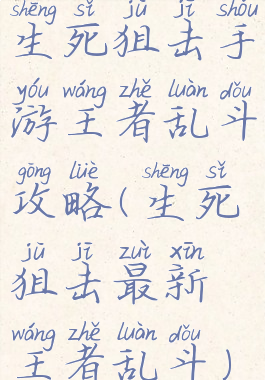 shēng sǐ jū jī shǒu
生死狙击手
yóu wáng zhě luàn dǒu
游王者乱斗
gōng lüè shēng sǐ
攻略(生死
jū jī zuì xīn
狙击最新
wáng zhě luàn dǒu
王者乱斗)